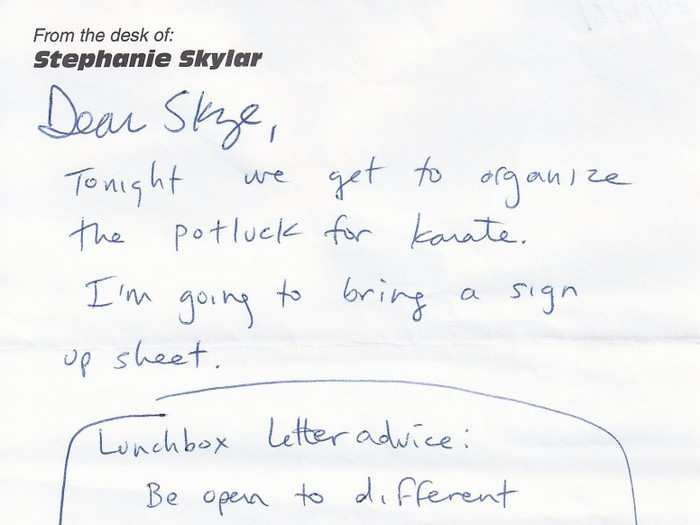 From the desk of:
Stephanie Skylar
Dear Skye,
Tonight we get to organize
the potluck for karate.
I'm going to bring a sign
up sheet.
Lunchbox Letter advice:
Be open to different